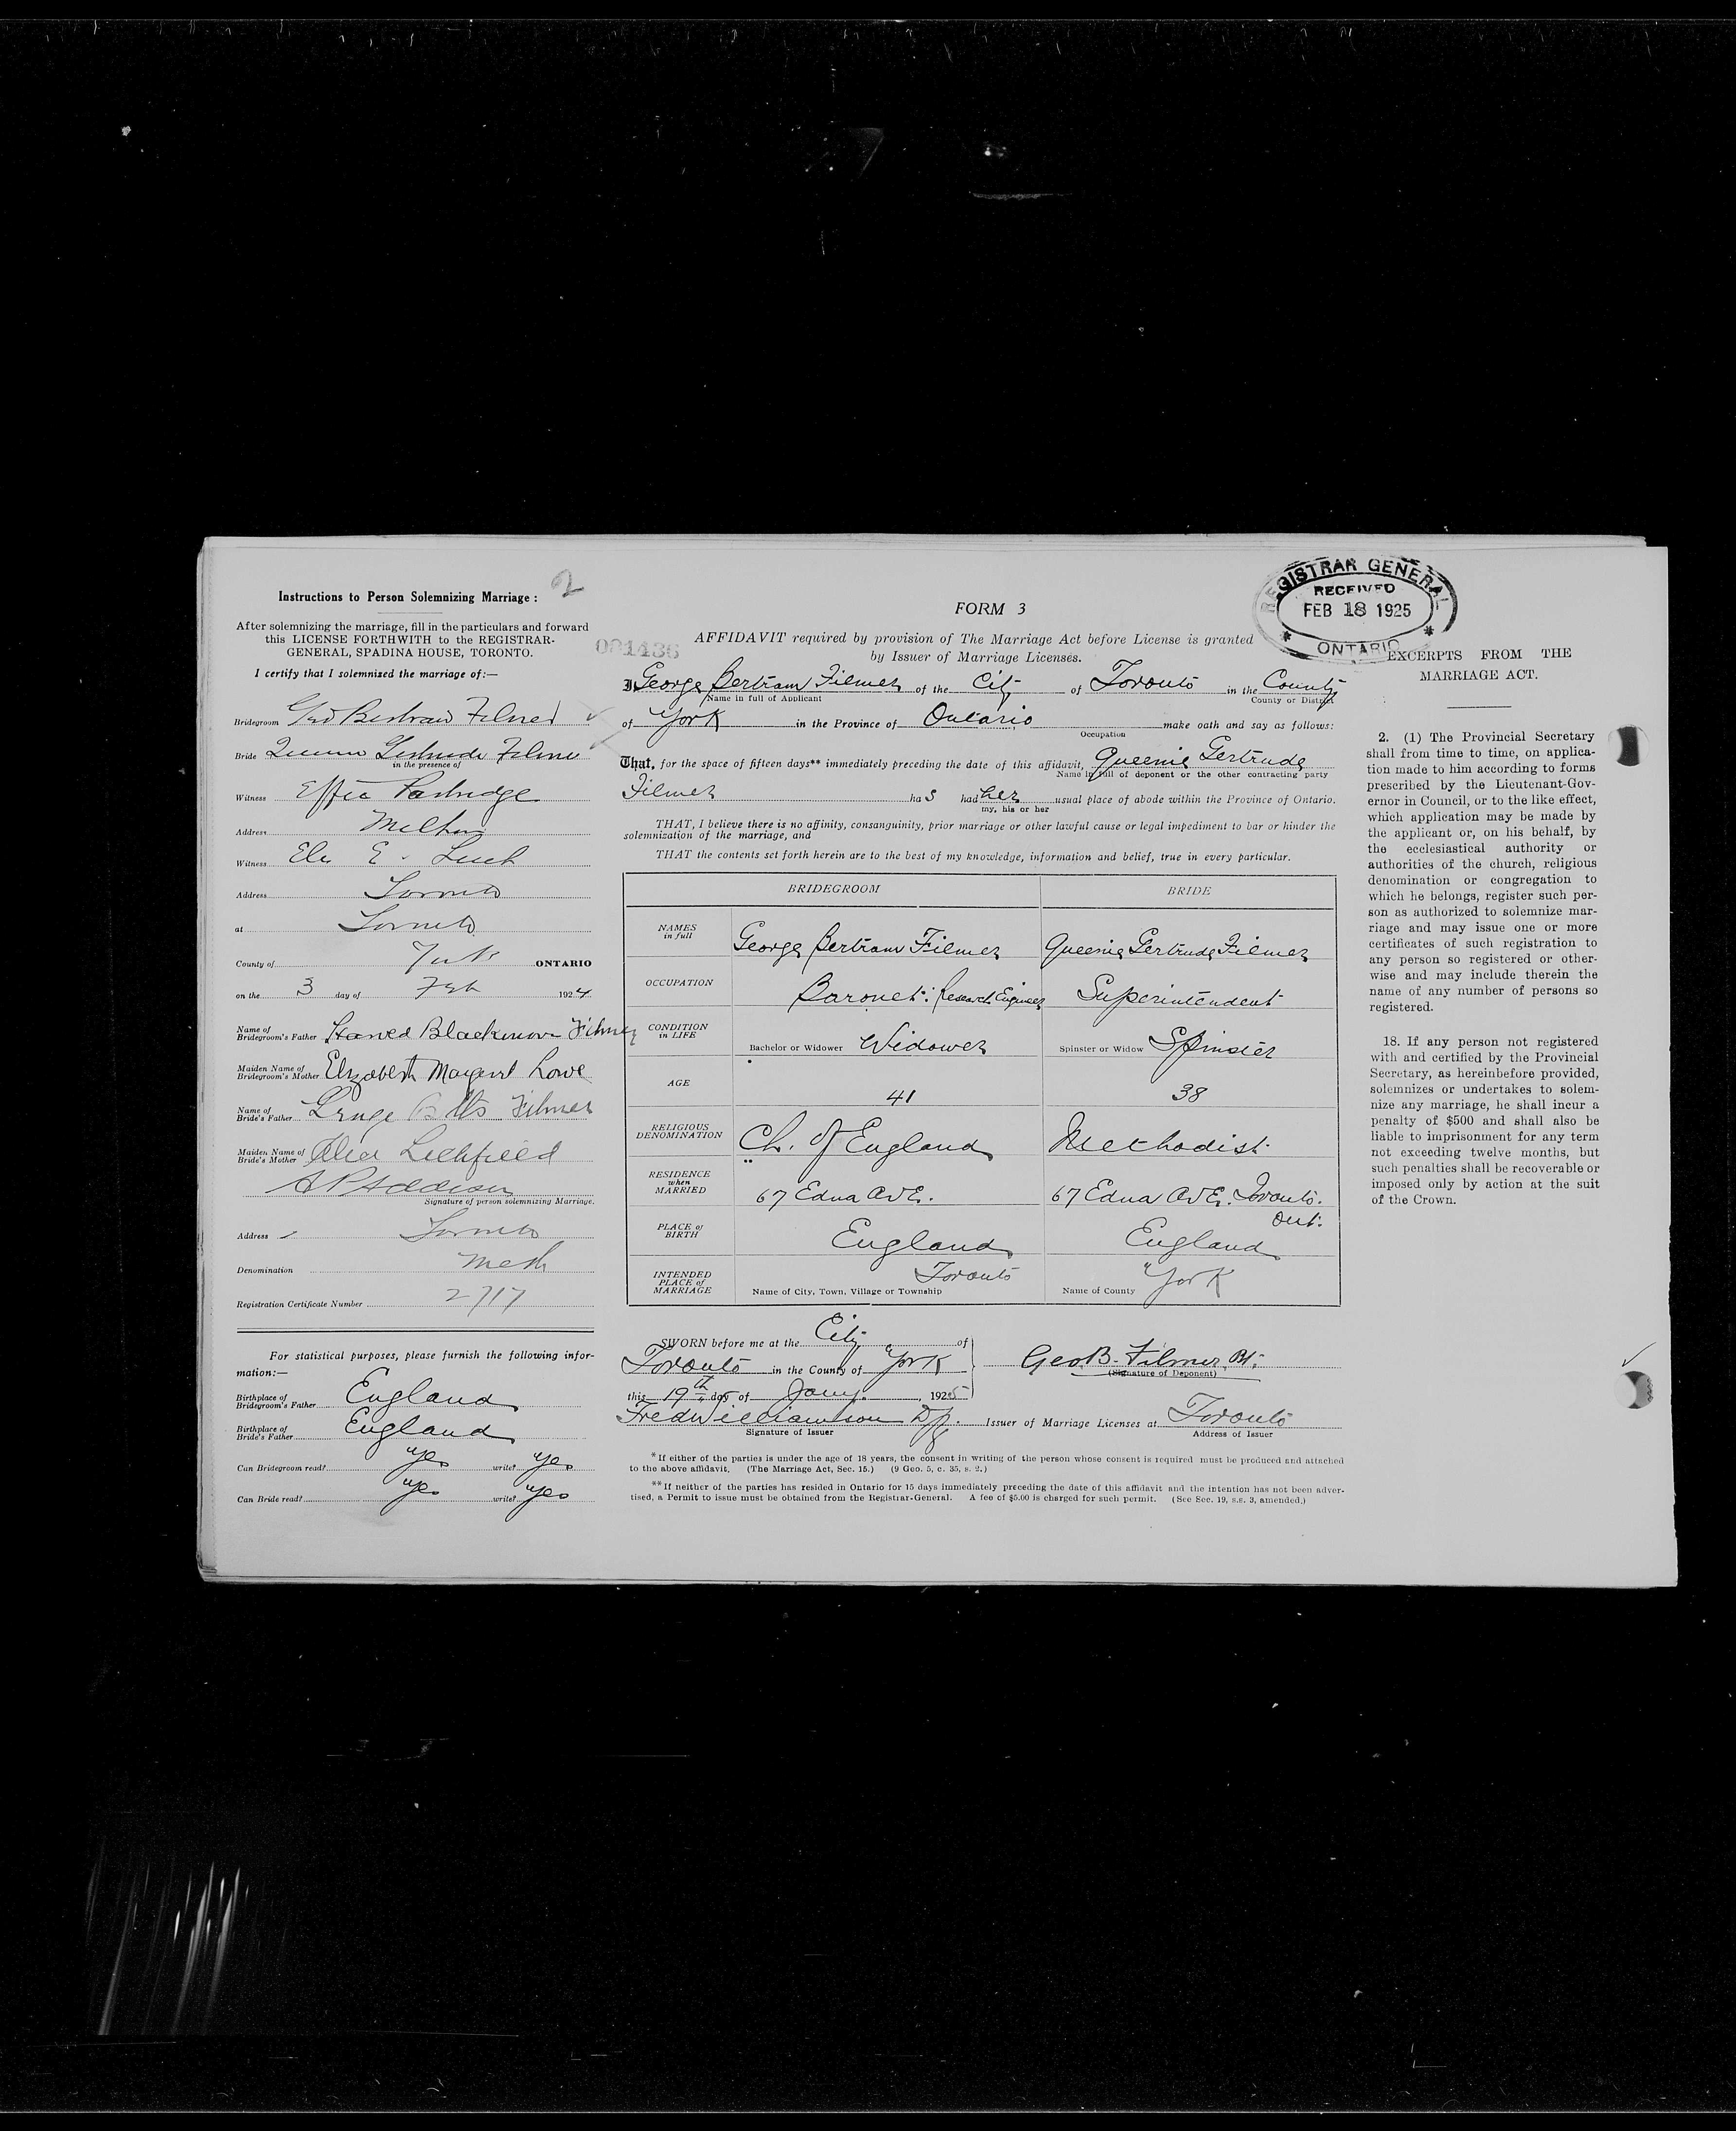 2
Instructions to Person Solemnizing Marriage :
After solemnizing the marriage, fill in the particulars and forward
this LICENSE FORTHWITH to the REGISTRAR-
GENERAL, SPADINA HOUSE, TORONTO.
I certify that I solemnized the marriage of:—
Bridegroom Geo Bertram Filmer
Bride Gertrude Filmer
in the presence of
Witness Effie Partridge
Address
Witness E.
Address Toronto
at Toronto
County of York ONTARIO
on the 3 day of Feb 1924
Name of
Bridegroom's Father Blackmore Filmer
Maiden Name of
Bridegroom's Mother Elizabeth Margaret Lowe
Name of
Bride's Father Filmer
Maiden Name of
Bride's Mother
Signature of person solemnizing Marriage.
Address Toronto
Denomination Meth
Registration Certificate Number 2717
For statistical purposes, please furnish the following infor-
mation:—
Birthplace of
Bridegroom's Father England
Birthplace of
Bride's Father England
Can Bridegroom read? yes write? yes
Can Bride read? yes write? yes
001436
FORM 3
AFFIDAVIT required by provision of The Marriage Act before License is granted
by Issuer of Marriage Licenses.
I George Bertram Filmer of the City of Toronto in the County
Name in full of Applicant County or District
of York in the Province of Ontario make oath and say as follows:
Occupation
That, for the space of fifteen days** immediately preceding the date of this affidavit, Queenie Gertrude
Name in full of deponent or the other contracting party
Filmer ha s had her usual place of abode within the Province of Ontario.
my, his or her
THAT, I believe there is no affinity, consanguinity, prior marriage or other lawful cause or legal impediment to bar or hinder the
solemnization of the marriage, and
THAT the contents set forth herein are to the best of my knowledge, information and belief, true in every particular.
BRIDEGROOM BRIDE
NAMES
in full George Bertram Filmer Queenie Gertrude Filmer
OCCUPATION Baronet: Research Engineer Superintendent
CONDITION
in LIFE Bachelor or Widower Widower Spinster or Widow Spinster
AGE 41 38
RELIGIOUS
DENOMINATION Ch. of England Methodist
RESIDENCE
when
MARRIED 67 Edna Ave. 67 Edna Ave. Toronto.
Ont.
PLACE of
BIRTH England England
INTENDED
PLACE of
MARRIAGE Name of City, Town, Village or Township Toronto Name of County York
SWORN before me at the City of
Toronto in the County of York
this 19th day of Jany. 1925
Geo. B. Filmer, Bt.
(Signature of Deponent)
Fred Williamson Issuer of Marriage Licenses at Toronto
Signature of Issuer Address of Issuer
* If either of the parties is under the age of 18 years, the consent in writing of the person whose consent is required must be produced and attached
to the above affidavit, (The Marriage Act, Sec. 15.) (9 Geo. 5, c. 35, s. 2.)
** If neither of the parties has resided in Ontario for 15 days immediately preceding the date of this affidavit and the intention has not been adver-
tised, a Permit to issue must be obtained from the Registrar-General. A fee of $5.00 is charged for such permit. (See Sec. 19, s.s. 3, amended.)
REGISTRAR GENERAL
RECEIVED
FEB 18 1925
ONTARIO
EXCERPTS FROM THE
MARRIAGE ACT.
2. (1) The Provincial Secretary
shall from time to time, on applica-
tion made to him according to forms
prescribed by the Lieutenant-Gov-
ernor in Council, or to the like effect,
which application may be made by
the applicant or, on his behalf, by
the ecclesiastical authority or
authorities of the church, religious
denomination or congregation to
which he belongs, register such per-
son as authorized to solemnize mar-
riage and may issue one or more
certificates of such registration to
any person so registered or other-
wise and may include therein the
name of any number of persons so
registered.
18. If any person not registered
with and certified by the Provincial
Secretary, as hereinbefore provided,
solemnizes or undertakes to solem-
nize any marriage, he shall incur a
penalty of $500 and shall also be
liable to imprisonment for any term
not exceeding twelve months, but
such penalties shall be recoverable or
imposed only by action at the suit
of the Crown.